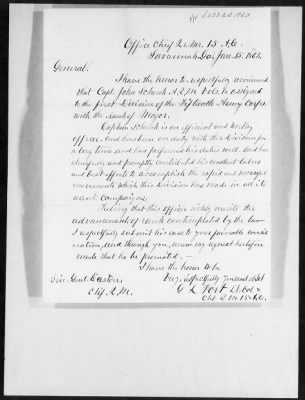 Office Chief Q.M. 15 A.C.
Savannah, Ga, Jan. 15. 1865.
General.
I have the honor to respectfully recommend
that Capt. John Schenk A.Q.M. Vols, be assigned
to the first Division of the Fifteenth Army Corps
with the rank of Major.
Captain Schenk is an efficient and worthy
officer. And has been on duty with this Division for
a long time and has performed his duties well. And has
cheerfully and promptly contributed his constant labors
and best efforts to accomplish the rapid and
movements which this Division has made in all it
campaigns.
Feeling that this officer richly merits the
advancement of rank contemplated by the law
I respectfully submit his case to your favorable consid
eration, and through you, renew my request heretofore
made that he be promoted. –
I have the honor to be
very respectfully Your obt Svt
G. L. Fort Lt. Col &
Chf Q.M. 15 A.C.
Genl Easton
Chf. Q.M.